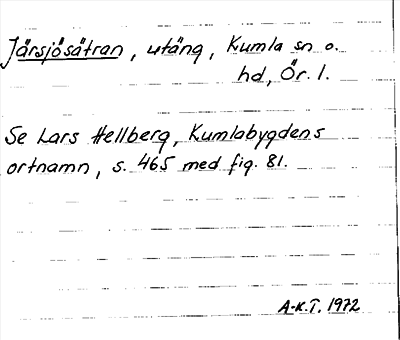 Järsjösätran, utäng, Kumla sn o.
hd, Ör. l.
Se Lars Hellberg, Kumlabygdens
ortnamn, s. 465 med fig. 81.
A-K.T. 1972